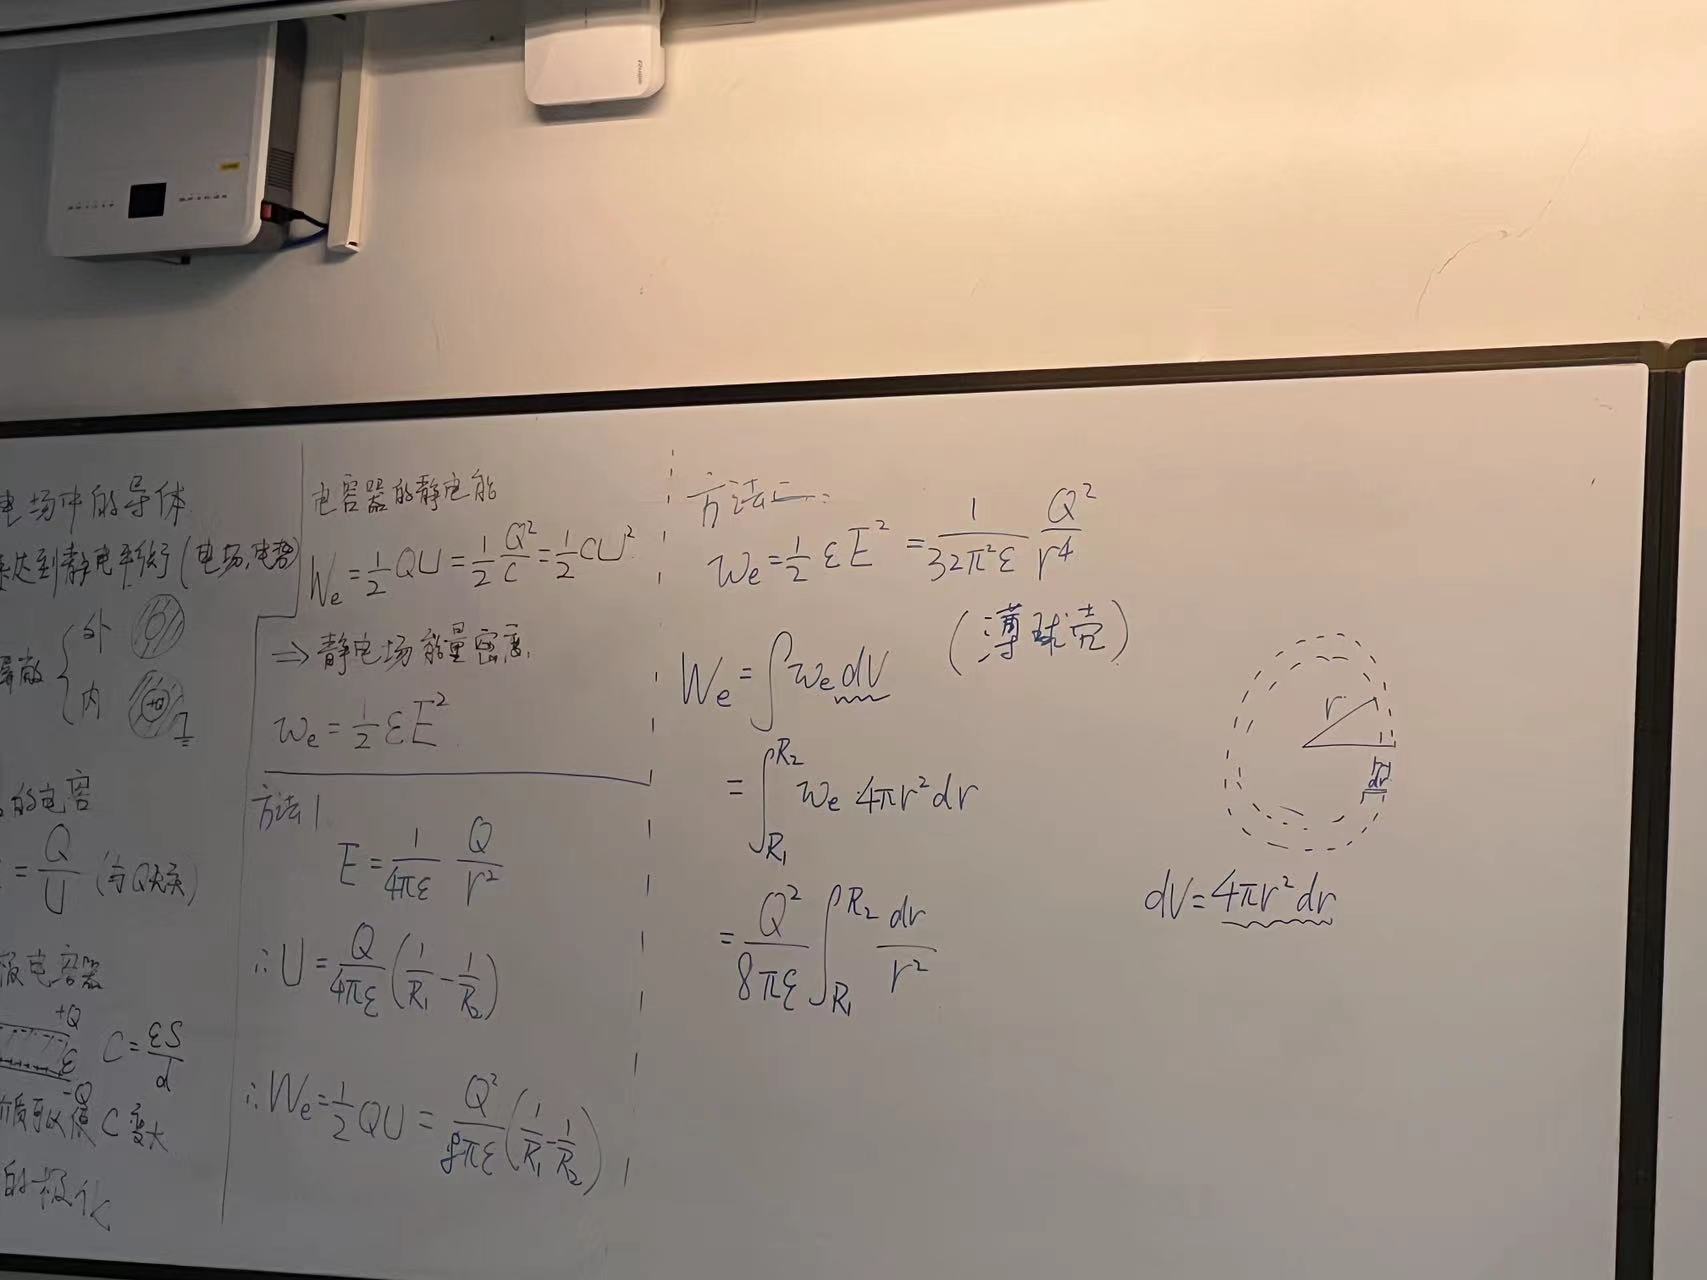 电场中的导体
达到静电平衡 (电场,电势)
屏蔽 { 外
内
+q
的电容
= Q/U (与Q无关)
极电容器
+Q
ε
-Q
C = εS/d
介质可以使C变大
的极化
电容器的静电能
We = 1/2 QU = 1/2 Q²/C = 1/2 CU²
⇒ 静电场能量密度.
we = 1/2 εE²
方法1
E = 1/4πε Q/r²
∴ U = Q/4πε (1/R₁ - 1/R₂)
∴ We = 1/2 QU = Q²/8πε (1/R₁ - 1/R₂)
方法二:
we = 1/2 εE² = 1/32π²ε Q²/r⁴
(薄球壳)
We = ∫ we dV
= ∫_{R₁}^{R₂} we·4πr²dr
= Q²/8πε ∫_{R₁}^{R₂} dr/r²
r
dr
dV = 4πr²dr